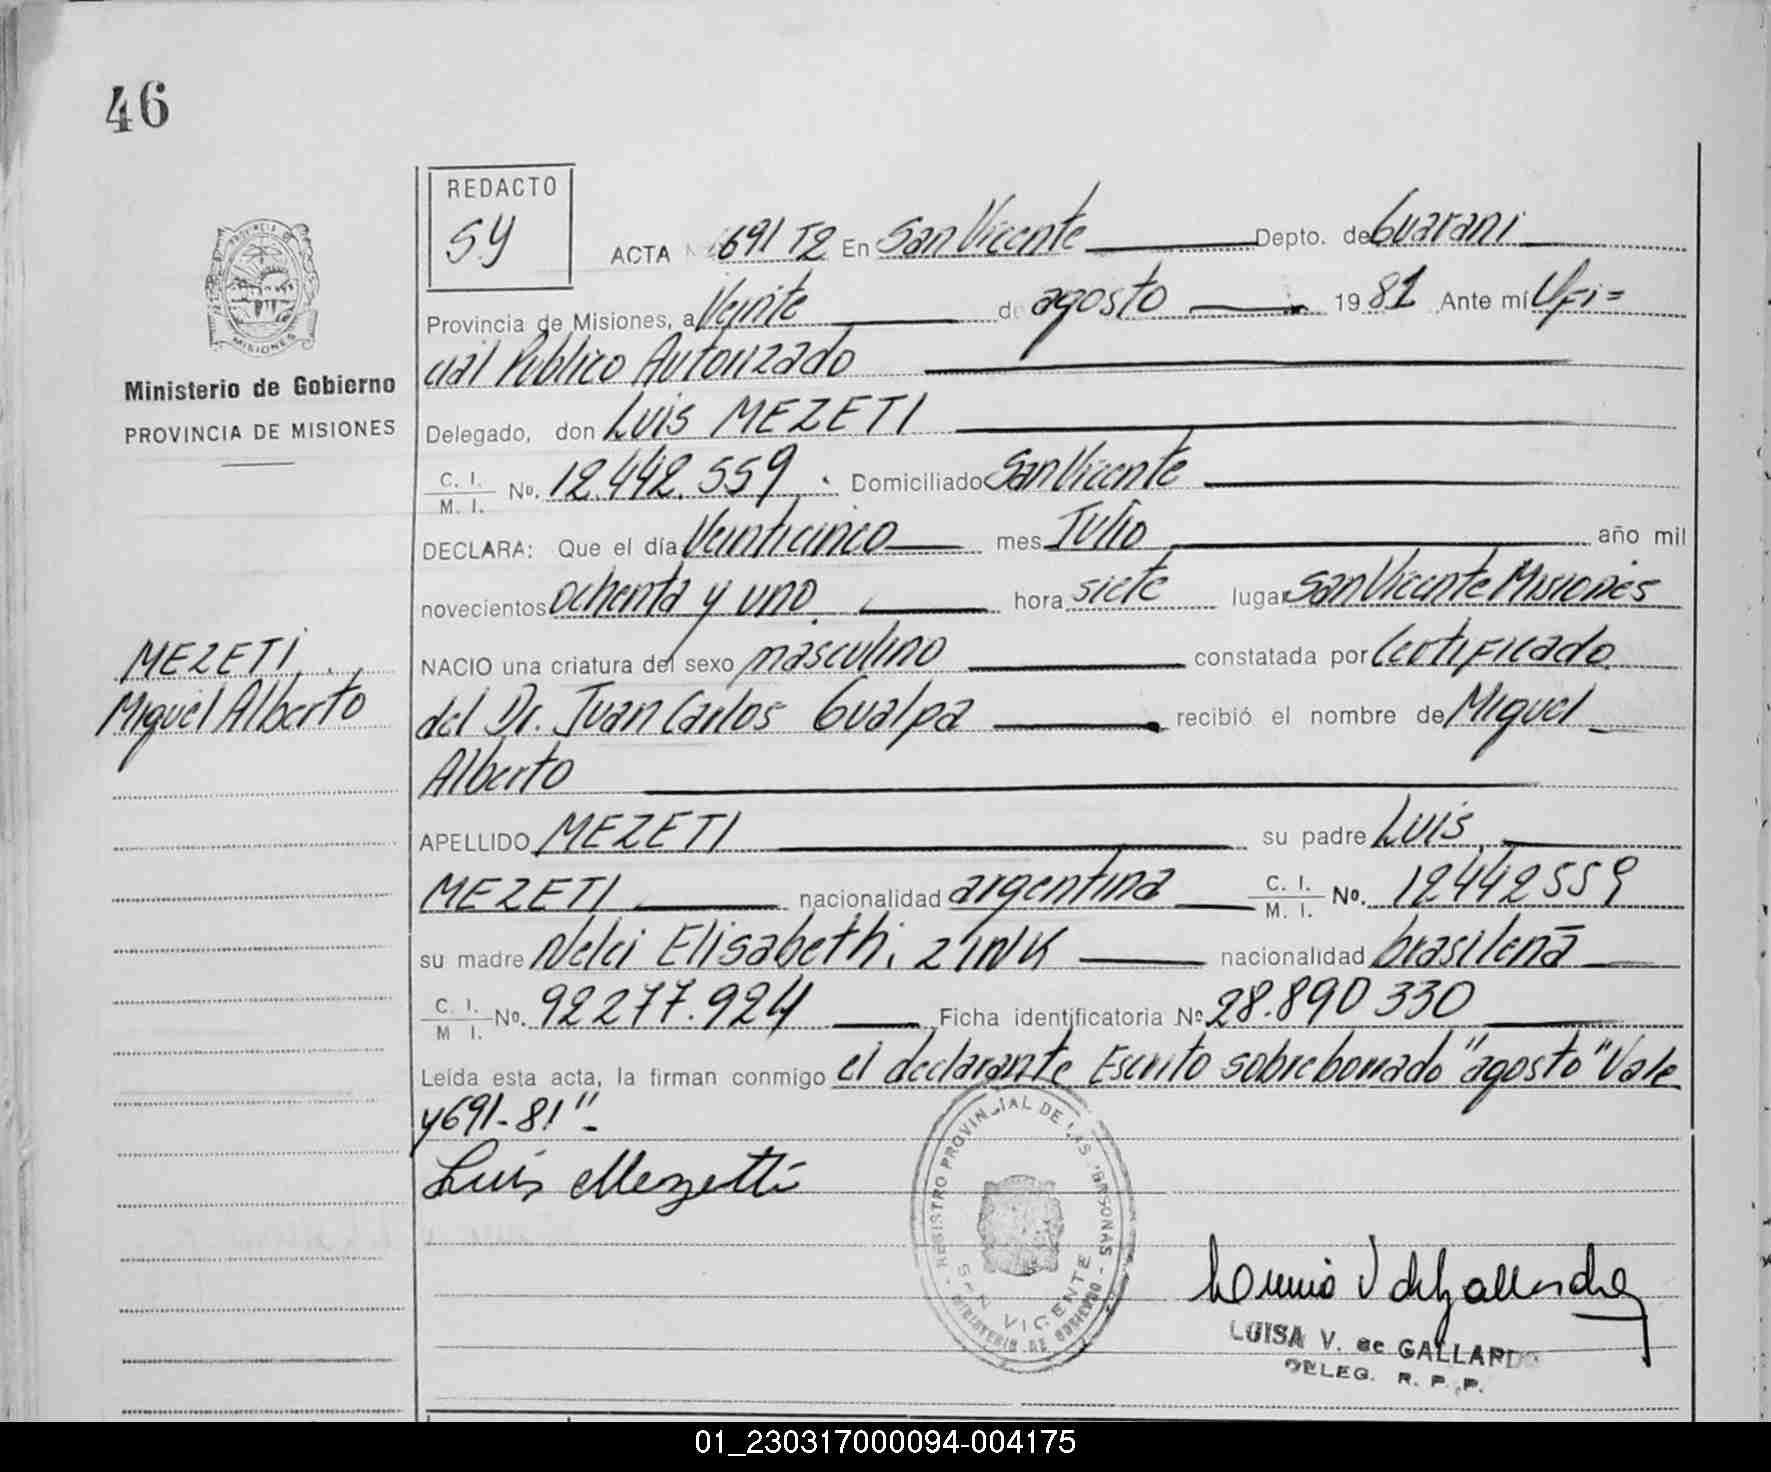 46
REDACTO
SY
ACTA N 691 T2 En San Vicente Depto. de Guarani
Provincia de Misiones, a Veinte de agosto 1981 Ante mí Ofi=
cial Público Autorizado
Delegado, don Luis MEZETI
C. I. M. I. No. 12.442.559 Domiciliado San Vicente
DECLARA: Que el día Veinticinco mes Julio año mil
novecientos ochenta y uno hora siete lugar San Vicente Misiones
NACIO una criatura del sexo masculino constatada por Certificado
del Dr. Juan Carlos Gualpa recibió el nombre de Miguel
Alberto
APELLIDO MEZETI su padre Luis
MEZETI nacionalidad argentina C. I. M. I. No. 12442559
su madre Nelci Elisabeth ZINK nacionalidad brasilena
C. I. M I. No. 92277.924 Ficha identificatoria No 28.890 330
Leída esta acta, la firman conmigo el declarante Escrito sobreborrado "agosto" Vale
y 691-81"-
Luis Mezetti
PROVINCIA DE
MISIONES
Ministerio de Gobierno
PROVINCIA DE MISIONES
MEZETI
Miguel Alberto
REGISTRO PROVINCIAL DE LAS PERSONAS
SAN VICENTE
MINISTERIO DE GOBIERNO
LUISA V. de GALLARDO
DELEG. R. P. P.
01_230317000094-004175